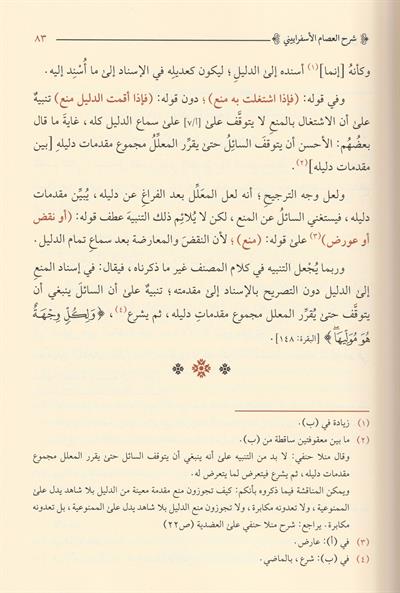 شرح العصام الأسفراييني
٨٣
وكأنهُ [إنما](١) أسنده إلىٰ الدليلِ؛ ليكون كعديلِهِ في الإسناد إلىٰ ما أُسْنِد إليه.
وفي قوله: (فإذا اشتغلت به منع)؛ دون قوله: (فإذا أقمت الدليل منع) تنبيهٌ
علىٰ أن الاشتغال بالمنع لا يتوقَّف علىٰ [أ/٧] علىٰ سماع الدليل كله، غايةَ ما قال
بعضُهُم: الأحسن أن يتوقف السائِلُ حتىٰ يقرِّر المعلِّلُ مجموع مقدمات دليلهِ [بين
مقدمات دليله](٢).
ولعل وجه الترجيحِ؛ أنه لعل المعَلِّل بعد الفراغ عن دليله، يُبيِّن مقدمات
دليله، فيستغني السائلُ عن المنع، لكن لا يُلائِم ذلك التنبيهَ عطف قوله: (أو نقض
أو عورض)(٣) علىٰ قوله: (منع)؛ لأن النقضَ والمعارضة بعد سماعِ تمام الدليل.
وربما يُجْعل التنبيه في كلام المصنف غير ما ذكرناه، فيقال: في إسناد المنعِ
إلىٰ الدليل دون التصريح بالإسناد إلىٰ مقدمته؛ تنبيهٌ علىٰ أن السائلَ ينبغي أن
يتوقَّف حتىٰ يُقرِّر المعلل مجموع مقدماتِ دليله، ثم يشرع(٤)، ﴿وَلِكُلٍّ وِجْهَةٌ
هُوَ مُوَلِّيهَا﴾ [البقرة: ١٤٨].
(١) زيادة في (ب).
(٢) ما بين معقوفتين ساقطة من (ب).
وقال منلا حنفي: لا بد من التنبيه علىٰ أنه ينبغي أن يتوقف السائل حتىٰ يقرر المعلل مجموع
مقدمات دليله، ثم يشرع فيتعرض لما يتعرض له.
ويمكن المناقشة فيما ذكروه بأنكم: كيف تجوزون منع مقدمة معينة من الدليل بلا شاهد يدل علىٰ
الممنوعية، ولا تعدونه مكابرة، ولا تجوزون منع الدليل بلا شاهد يدل علىٰ الممنوعية، بل تعدونه
مكابرة. يراجع: شرح منلا حنفي علىٰ العضدية (ص٢٢)
(٣) في (أ): عارض.
(٤) في (ب): شرع، بالماضي.